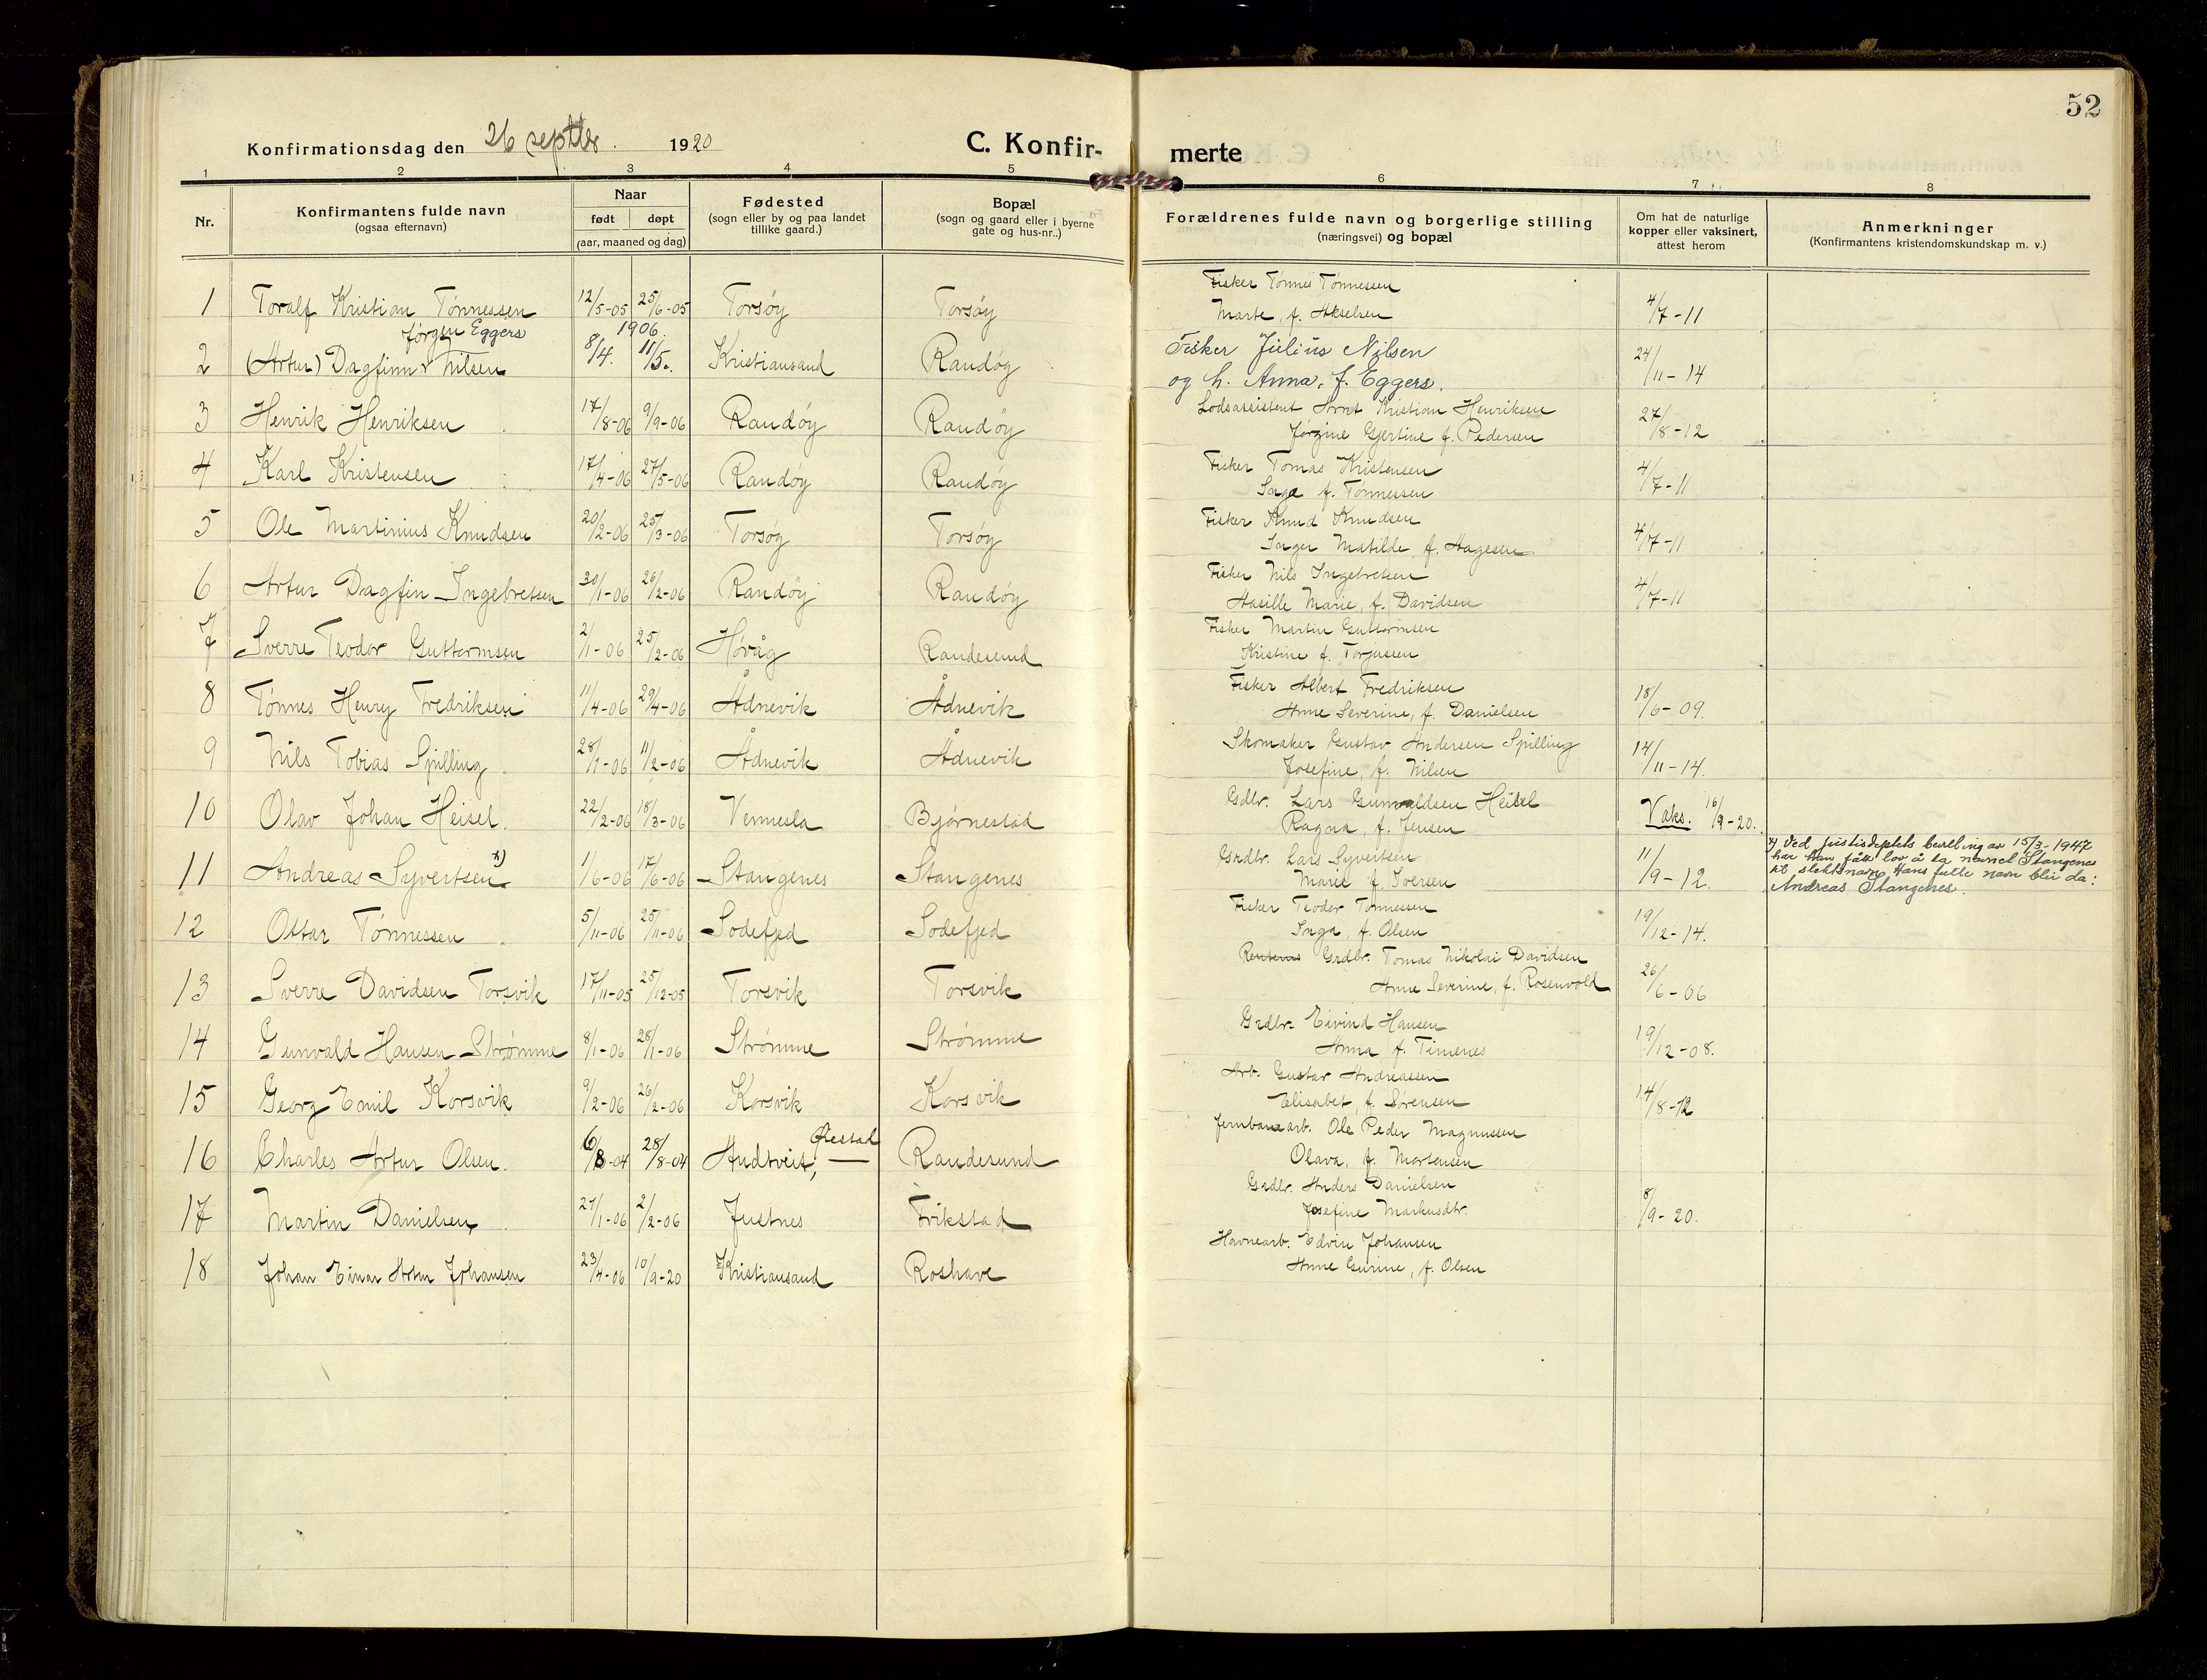 52
Konfirmationsdag den 26 septbr. 1920
C. Konfir-
merte
1 2 3 4 5 6 7 8
Nr.
Konfirmantens fulde navn
(ogsaa efternavn)
Naar
født døpt
(aar, maaned og dag)
Fødested
(sogn eller by og paa landet
tillike gaard.)
Bopæl
(sogn og gaard eller i byerne
gate og hus-nr..)
Forældrenes fulde navn og borgerlige stilling
(næringsvei) og bopæl
Om hat de naturlige
kopper eller vaksinert,
attest herom
Anmerkninger
(Konfirmantens kristendomskundskap m. v.)
Fisker Tønnes Tønnessen
1 Toralf Kristian Tønnessen 12/5-05 25/6-05 Torsøy Torsøy Marte, f. Akselsen 4/7-11
Jørgen Eggers 1906.
2 (Artur) Dagfinn Nilsen 8/4. 11/5. Kristiansand Randøy Fisker Julius Nilsen 24/11-14
og h. Anna, f. Eggers.
3 Henrik Henriksen 17/8-06 9/9-06 Randøy Randøy Lodsassistent Arnt Kristian Henriksen 27/8-12
Jørgine Gjertine f. Pedersen
4 Karl Kristensen 17/4-06 27/5-06 Randøy Randøy Fisker Tomas Kristensen 4/7-11
Inga f. Tønnessen
5 Ole Martinius Knudsen 20/2-06 25/3-06 Torsøy Torsøy Fisker Knud Knudsen 4/7-11
Inger Matilde, f. Aagesen
6 Artur Dagfin Ingebretsen 30/1-06 26/2-06 Randøy Randøy Fisker Nils Ingebretsen 4/7-11
Marie, f. Davidsen
7 Sverre Teodor Guttormsen 2/1-06 25/2-06 Høvåg Randesund Fisker Martin Guttormsen
Kristine f. Torjussen
8 Tønnes Henry Fredriksen 11/4-06 29/4-06 Ådnevik Ådnevik Fisker Albert Fredriksen 18/6-09.
Anne Severine, f. Danielsen
9 Nils Tobias Spilling 28/1-06 11/2-06 Ådnevik Ådnevik Skomaker Gustav Andersen Spilling 14/11-14.
Josefine, f. Nilsen
10 Olav Johan Heisel. 22/2-06 18/3-06 Vennesla Bjørnestad Gdbr. Lars Gunvaldsen Heisel Vaks. 16/9-20.
Ragna, f. Jensen
11 Andreas Syvertsen x) 1/6-06 17/6-06 Stangenes Stangenes Grdbr. Lars Syvertsen 11/9-12.
Marie f. Iversen
x) Ved justisdeptets bevilling av 15/3-1947
har han fått lov å ta navnet Stangenes
til slektsnavn. Hans fulle navn blir da:
Andreas Stangenes.
12 Ottar Tønnessen 5/11-06 25/11-06 Sodefjed Sodefjed Fisker Teodor Tønnessen 19/12-14.
Inga, f. Olsen
13 Sverre Davidsen Torsvik 17/11-05 25/12-05 Torsvik Torsvik Grdbr. Tomas Nikolai Davidsen 26/6-06
Anne Severine, f. Rosenvold
14 Gunvald Hansen Strømme 8/1-06 28/1-06 Strømme Strømme Grdbr. Eivind Hansen 19/12-08.
Anna f. Timenes
15 Georg Emil Korsvik 9/2-06 26/2-06 Korsvik Korsvik Arb. Gustav Andreassen 14/8-12
Elisabet, f. Sørensen
16 Charles Artur Olsen. 6/8-04 28/8-04 Audtveit, Øiestad Randesund Jernbanearb. Ole Peder Magnussen
Olava, f. Mortensen
17 Martin Danielsen 27/1-06 2/2-06 Justnes Frikstad Grdbr. Anders Danielsen 8/9-20.
Josefine Markusdtr.
18 Johan Einar Artur Johansen 23/4-06 10/9-20 Kristiansand Roshave Havnearb. Edvin Johansen
Anne Gurine, f. Olsen